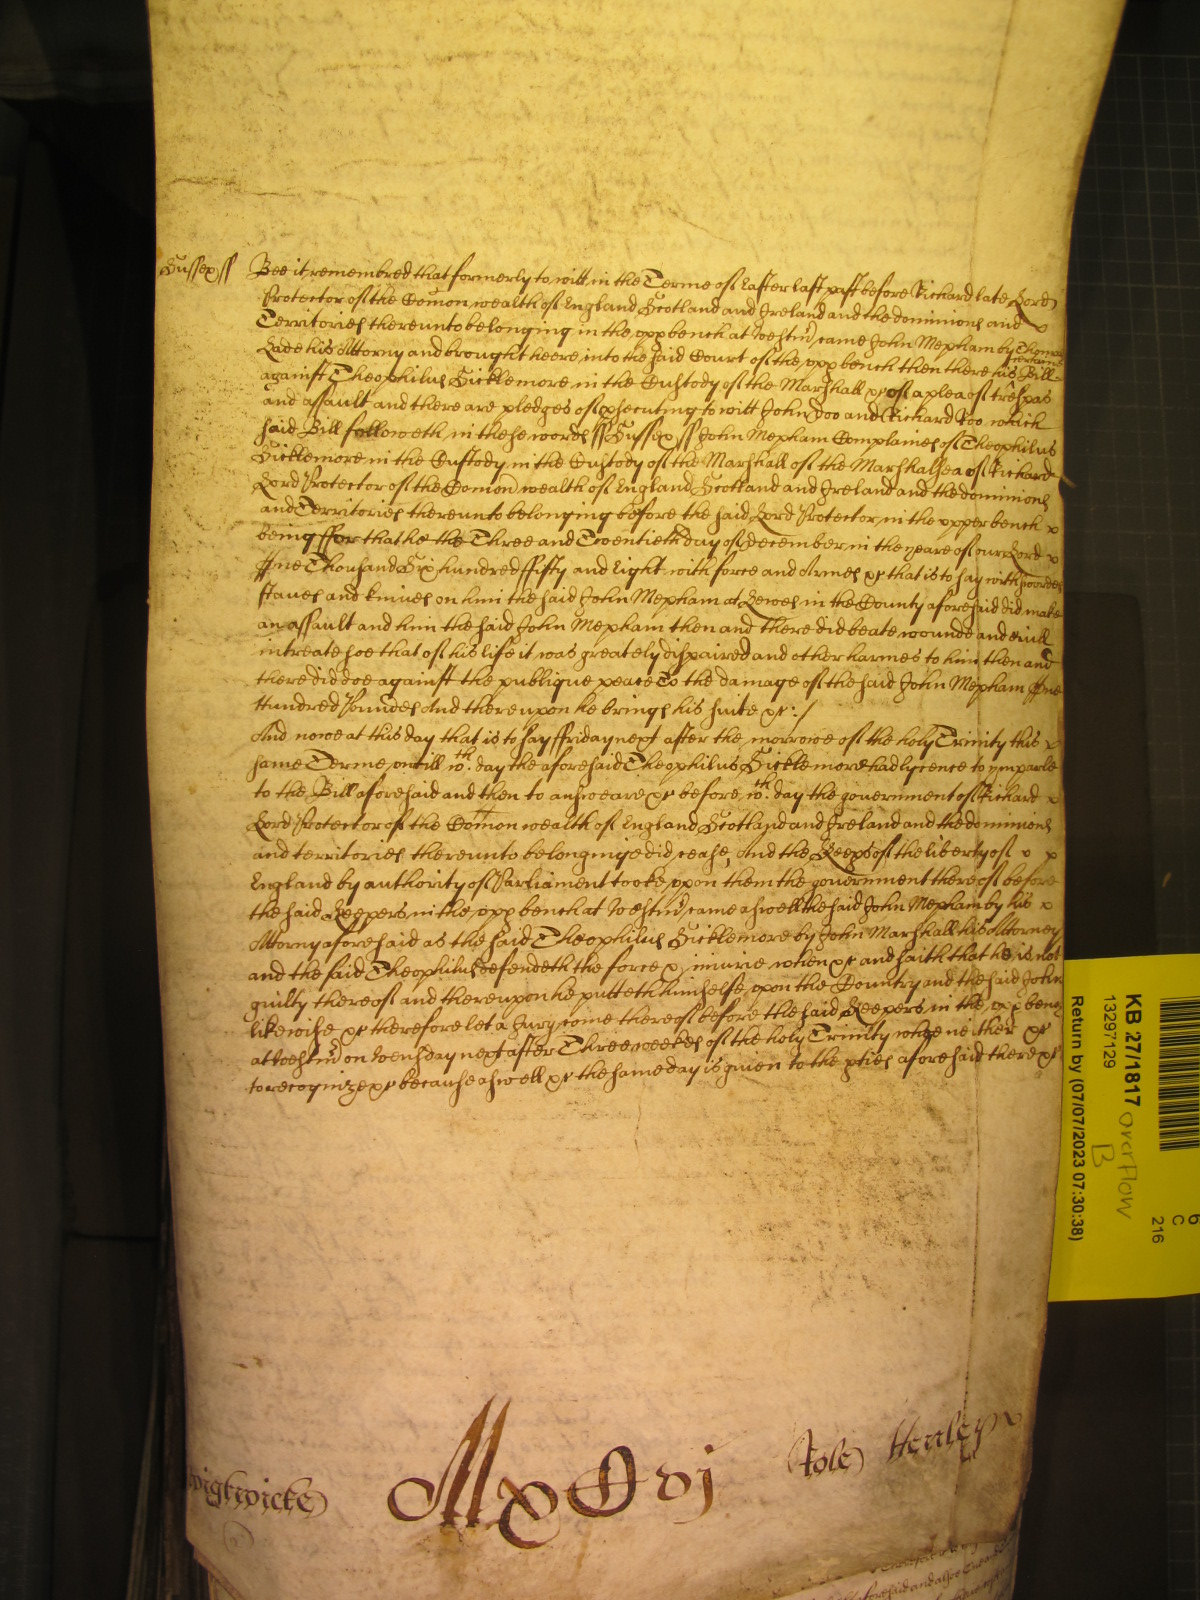 Sussex ss Bee it remembred that formerly to witt in the Terme of Easter last past before Richard late Lord
Protector of the Comon wealth of England Scotland and Ireland and the dominions and
Territories thereunto belonging in the upp bench at Westmr came John Mepham by Thomas
Lade his Attorny and brought heere into the said Court of the upp bench then there his certaine Bill
against Theophilus Sicklemore in the Custody of the Marshall &c of a plea of trespas
and assault and there are pledges of psecuting to witt John Doo and Richard Roo which
said Bill followeth in these words ss Sussex ss John Mepham Complaines of Theophilus
Sicklemore in the Custody in the Custody of the Marshall of the Marshalsea of Richard
Lord Protector of the Comon wealth of England Scotland and Ireland and the dominions
and Territories thereunto belonging before the said Lord Protector in the upper bench
being ffor that he the Three and Twentieth day of December in the yeare of our Lord
One Thousand Six hundred ffifty and Eight with force and Armes &c that is to say with swordes
staves and knives on him the said John Mepham at Lewes in the County aforesaid did make
an assault and him the said John Mepham then and there did beate wounde and evill
intreate soe that of his life it was greately dispaired and other harmes to him then and
there did doe against the publique peace To the damage of the said John Mepham One
Hundred Pounds And thereupon he brings his suite &c :/
And nowe at this day that is to say ffriday next after the morrowe of the holy Trinity this
same Terme untill wch. day the aforesaid Theophilus Sicklemore had lycence to imparle
to the Bill aforesaid and then to answeare &c before wch. day the government of Richard
Lord Protector of the Comon wealth of England Scotland and Ireland and the dominions
and territories thereunto belonginge did cease And the Keeps of the liberty of
England by authority of Parliament tooke upon them the government thereof before
the said Keepers in the upp bench at Westmr came aswell the said John Mepham by his
Attorny aforesaid as the said Theophilus Sicklemore by John Marshall his Attorney
and the said Theophilus defendeth the force & iniurie when &c and saith that he is not
guilty thereof and thereupon he putteth himselfe upon the Country and the said John
likewise &c therefore let a Jury come thereof before the said Keepers in the upp bench
at Westmr on Wensday next after Three weekes of the holy Trinity whoe neither &c
to recognize &c because aswell &c the same day is given to the pties aforesaid there &c
Wightwicke
Role Henley
KB 27/1817 overflow
B
13297129
Return by (07/07/2023 07:30:38)
6
C
216